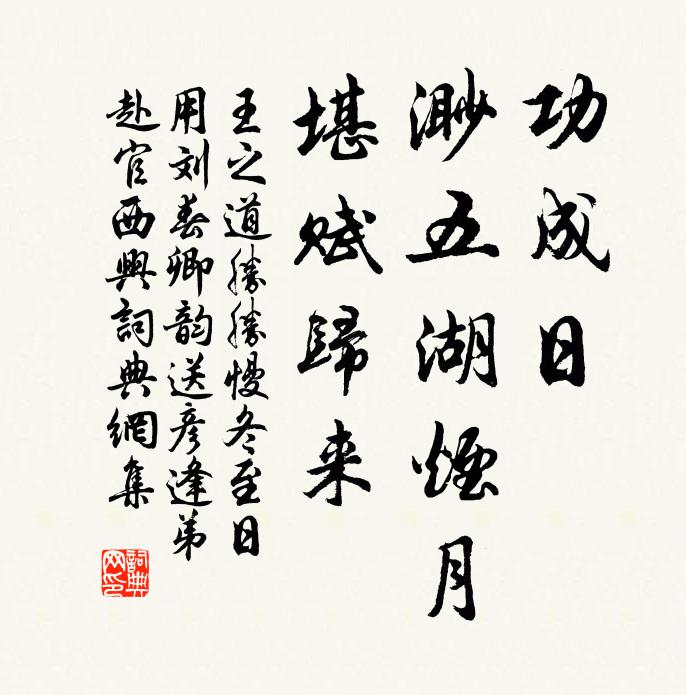 功成日
渺五湖煙月
堪赋歸来
王之道勝勝慢冬至日
用刘春卿韵送彦逢弟
赴官西興詞典網集
詞典
网印